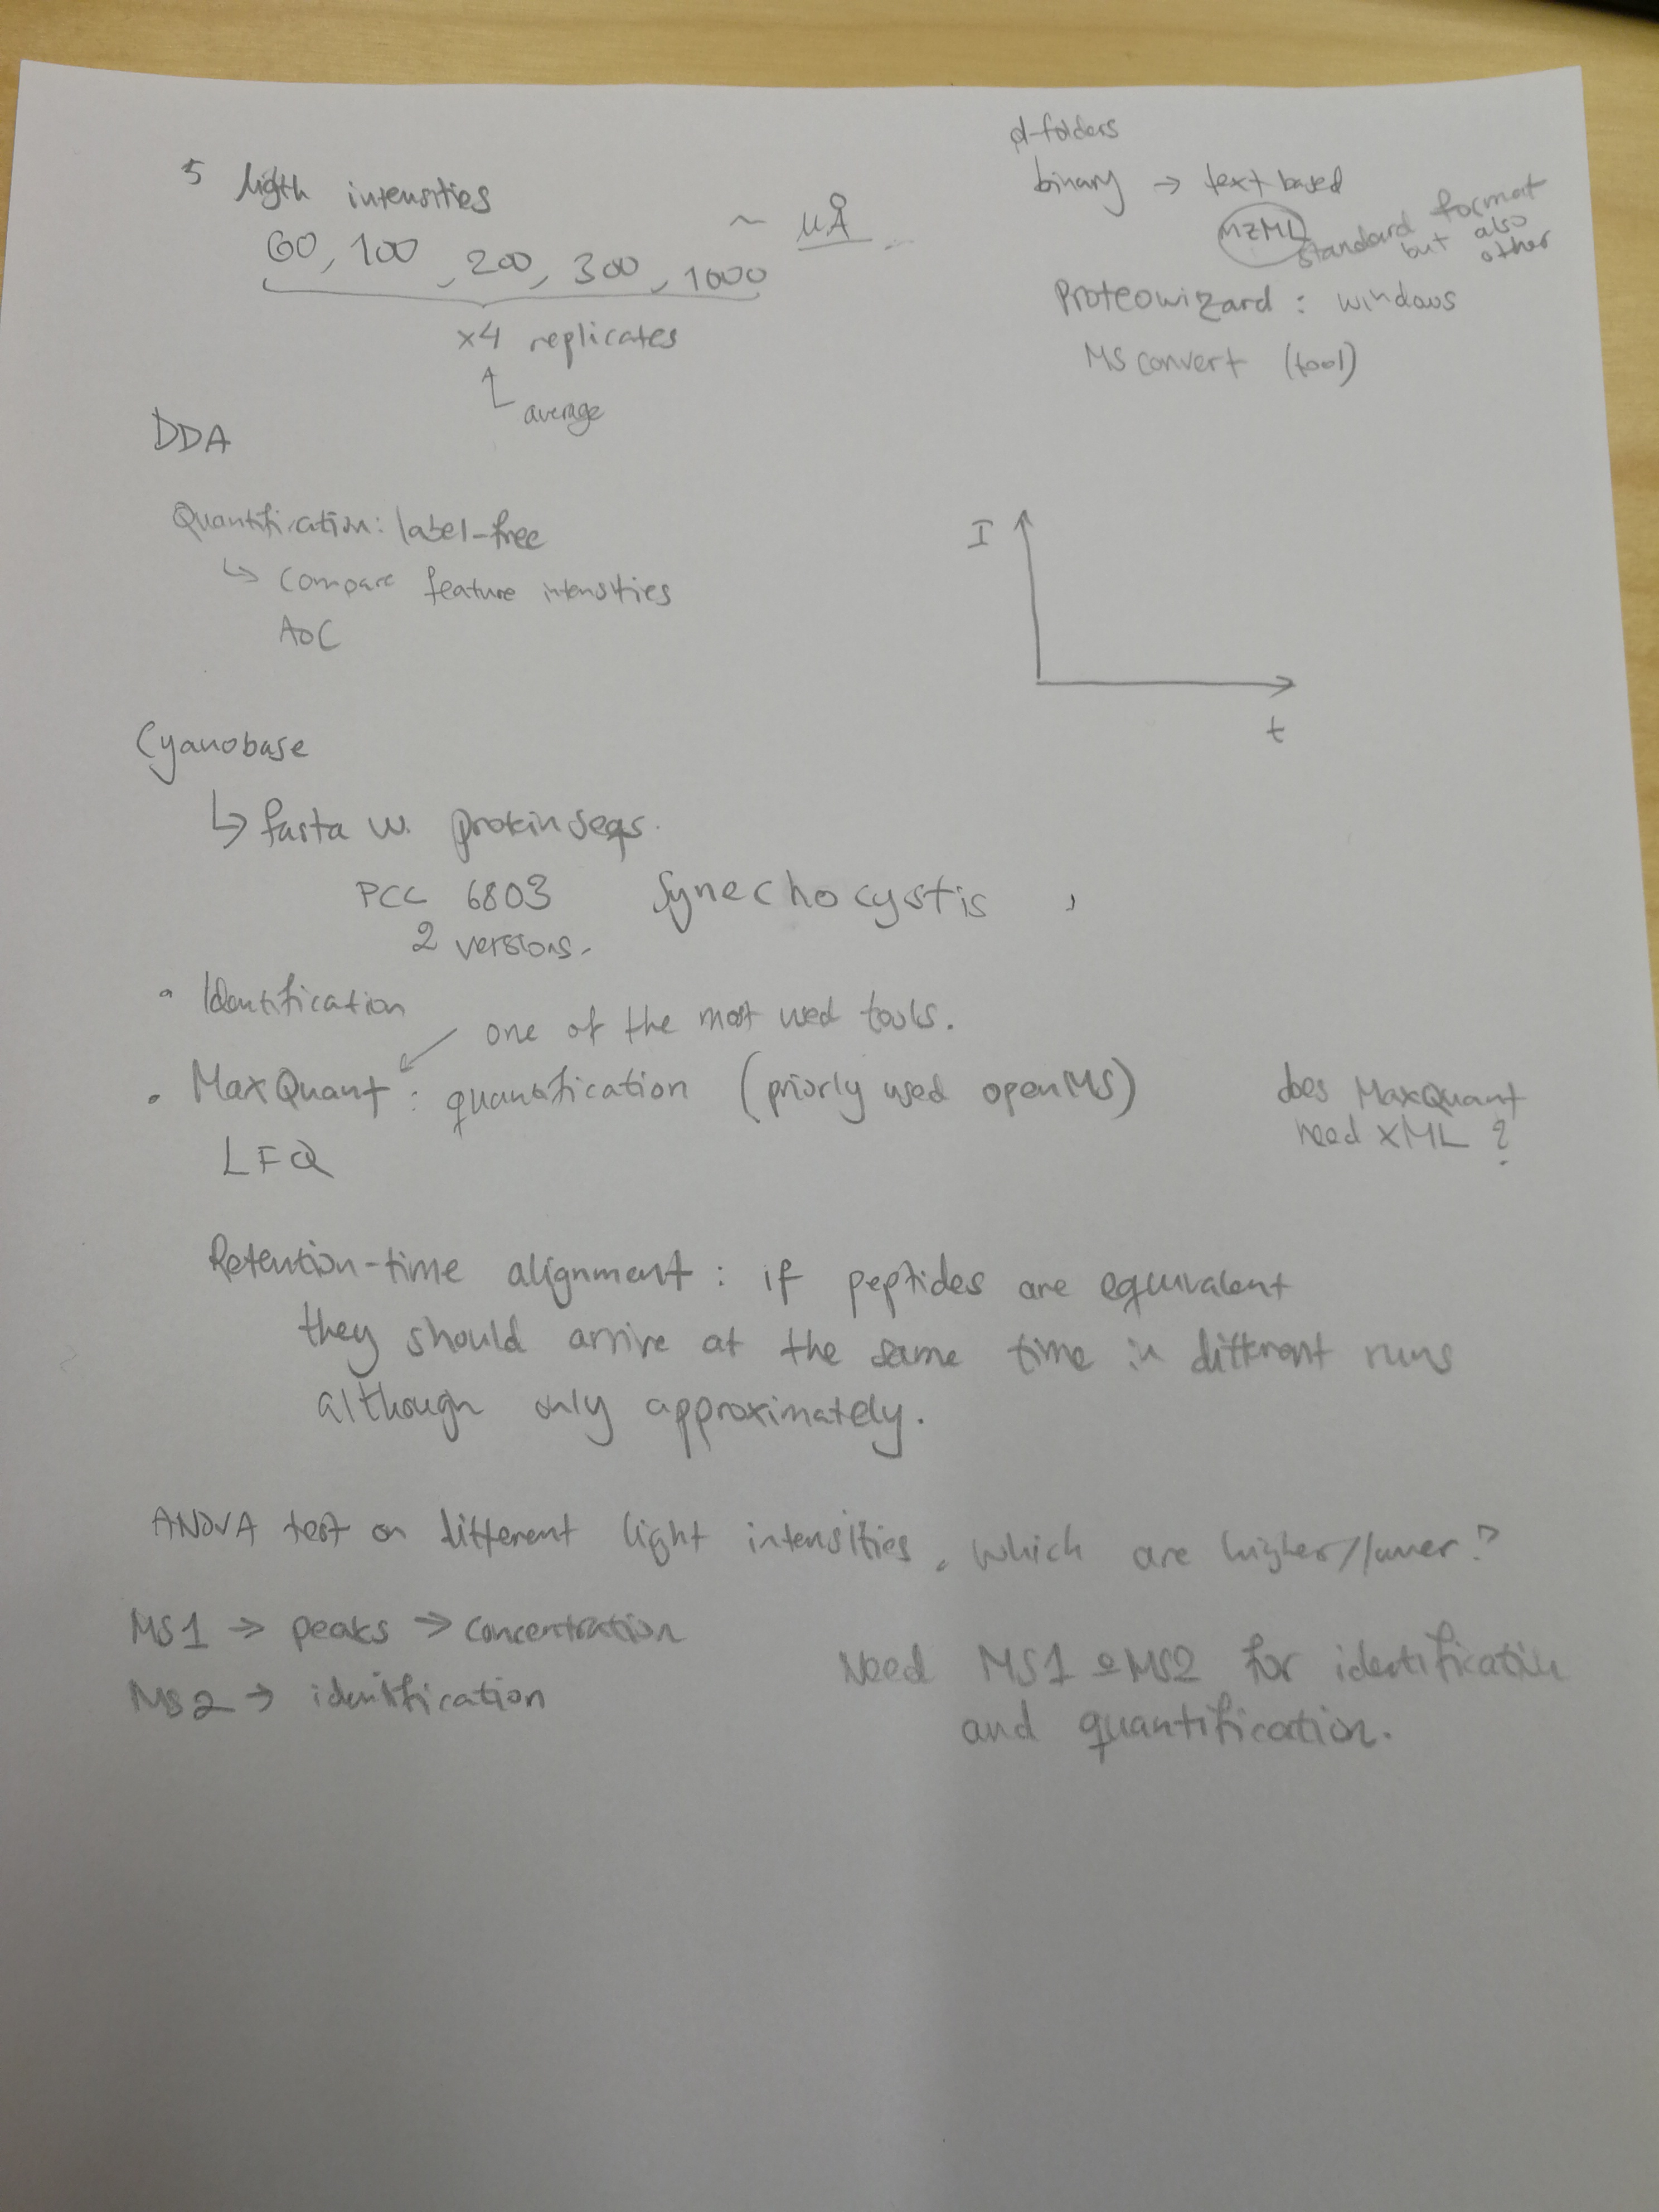 5 ligth intensities
60, 100, 200, 300, 1000
~ µÅ
x4 replicates
average
d-folders
binary → text based
mzML standard format
but also
other
Proteowizard : windows
MSconvert (tool)
DDA
Quantification: label-free
↳ Compare feature intensities
AOC
I
t
Cyanobase
↳ fasta w. protein seqs.
PCC 6803 Synechocystis ,
2 versions.
• Identification
one of the most used tools.
• MaxQuant : quantification (priorly used openMS)
LFQ
does MaxQuant
need XML ?
Retention-time alignment : if peptides are equivalent
they should arrive at the same time in different runs
although only approximately.
ANOVA test on different light intensities, which are higher/lower?
MS1 → peaks → concentration
MS2 → identification
Need MS1 & MS2 for identification
and quantification.